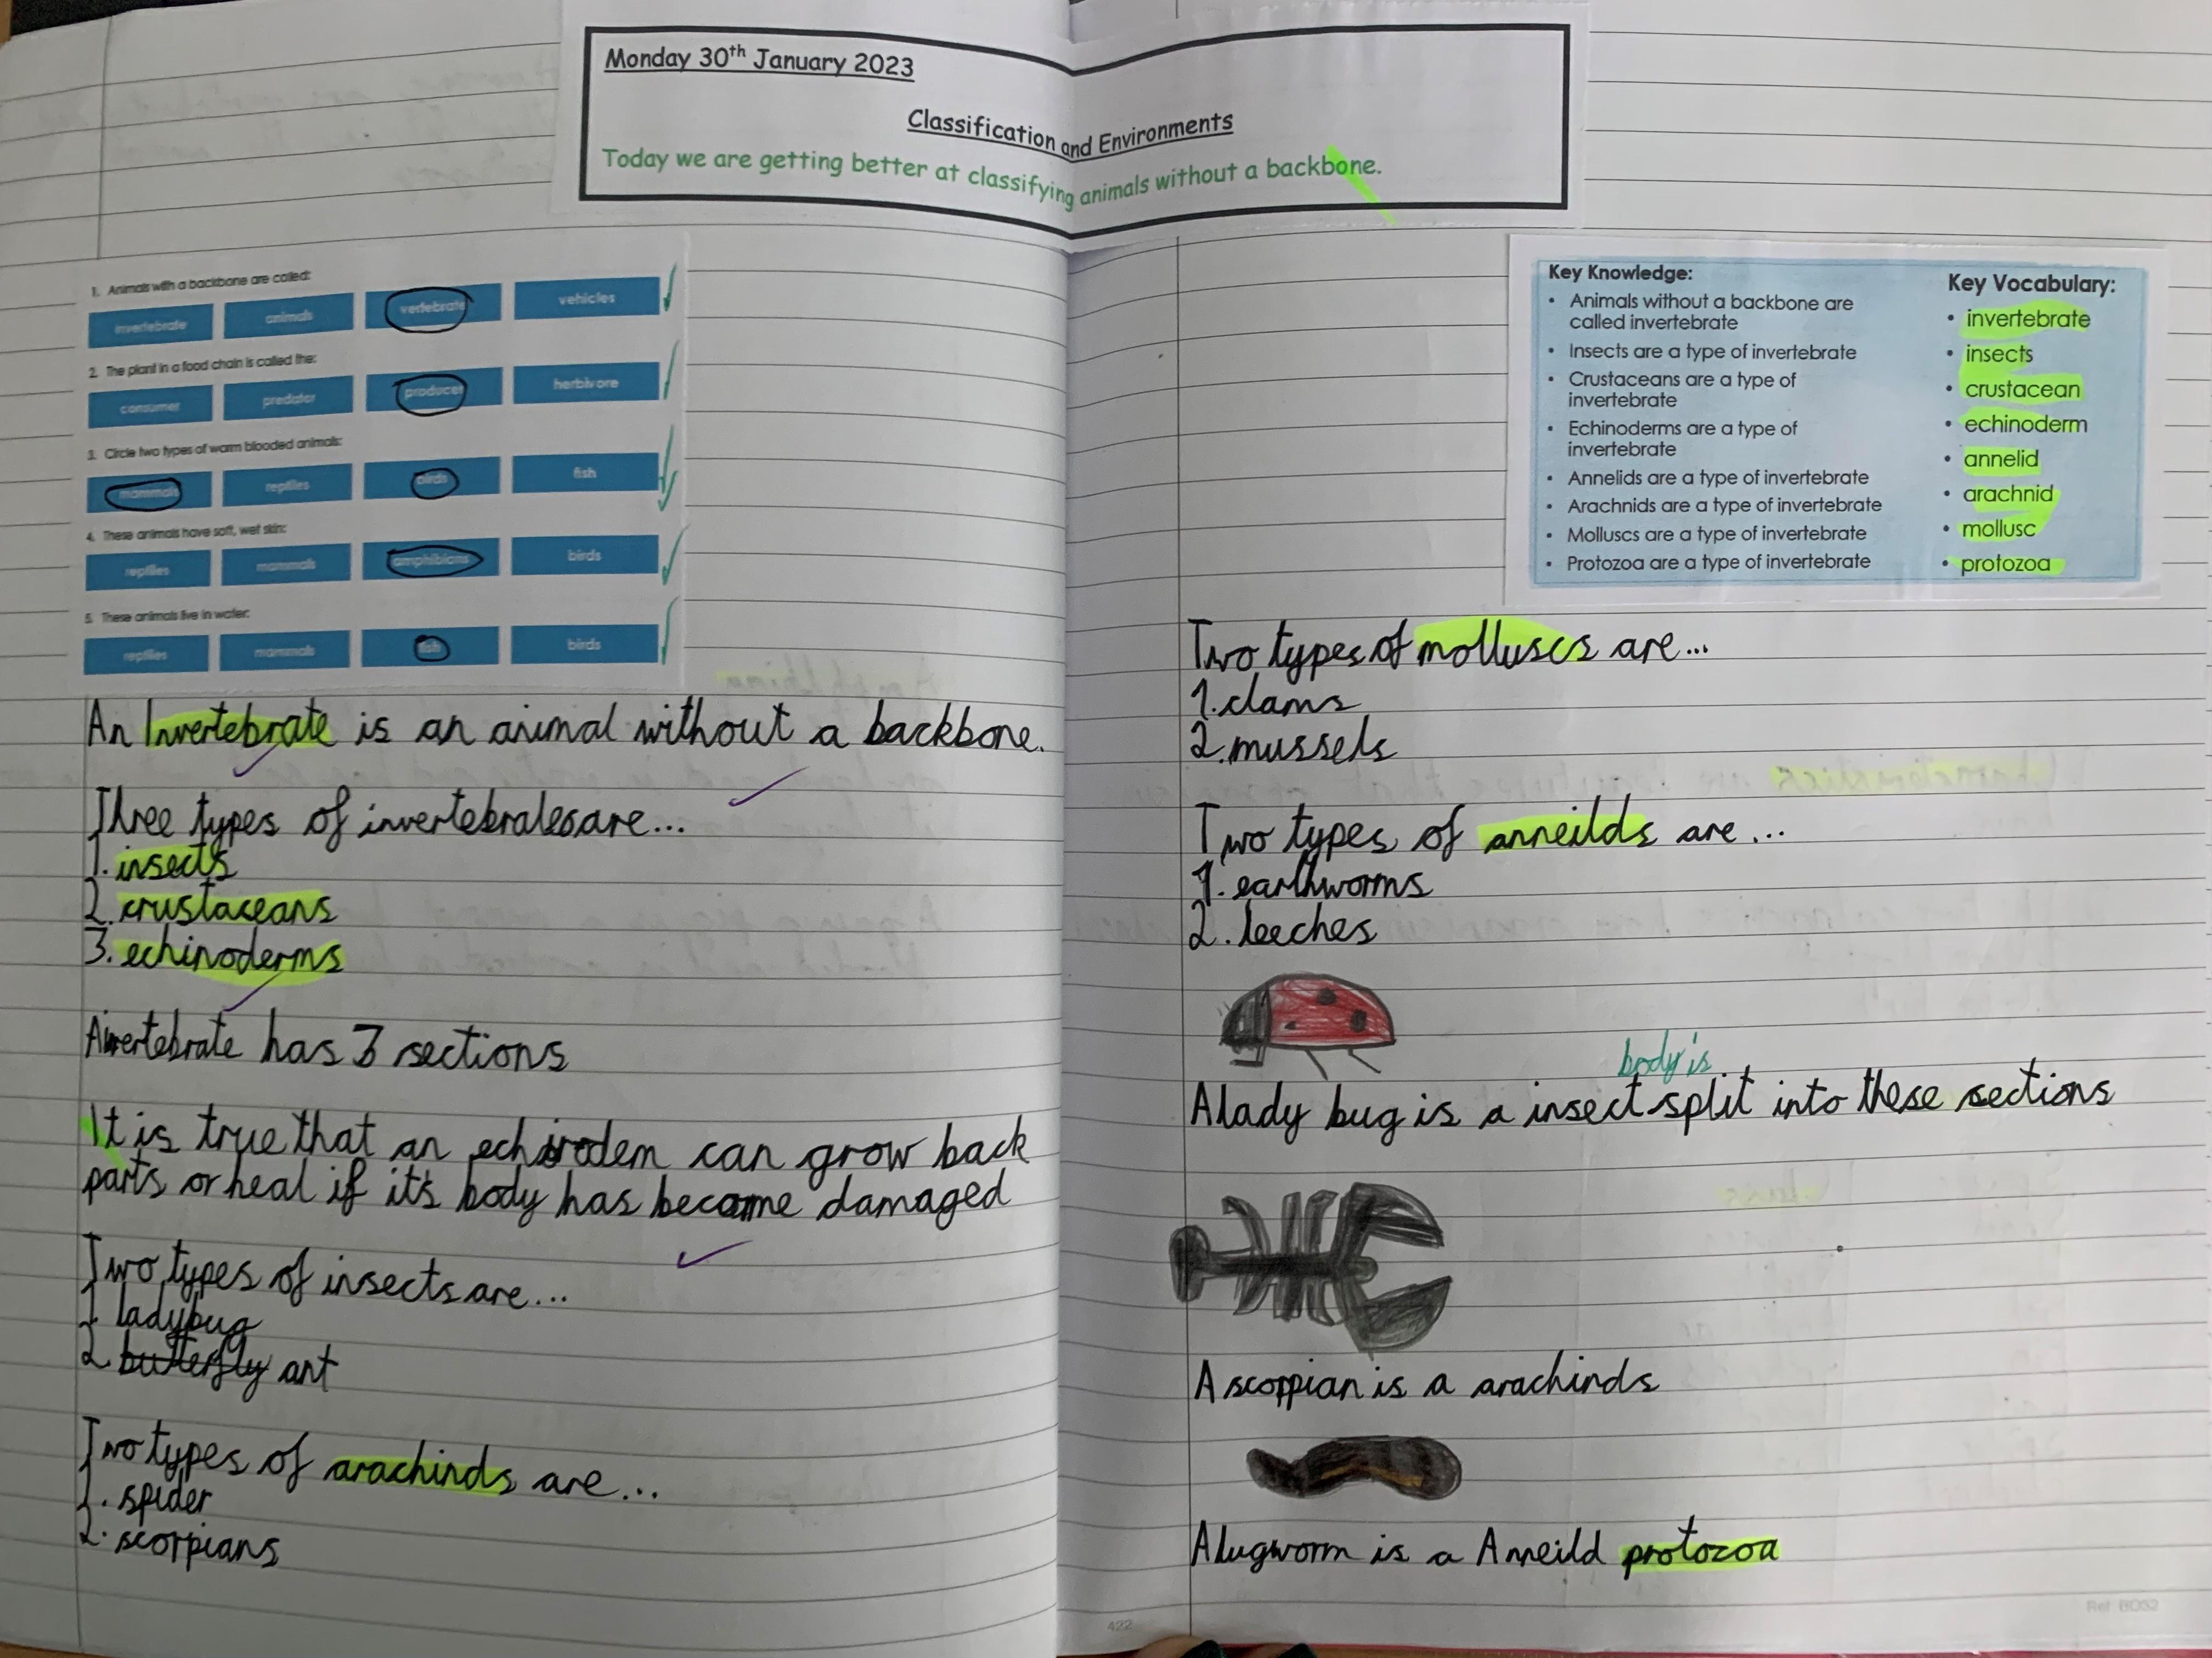 Monday 30th January 2023
Classification and Environments
Today we are getting better at classifying animals without a backbone.
1. Animals with a backbone are called:
invertebrate animals vertebrate vehicles
2. The plant in a food chain is called the:
consumer predator producer herbivore
3. Circle two types of warm blooded animals:
mammals reptiles birds fish
4. These animals have soft, wet skin:
reptiles mammals amphibians birds
5. These animals live in water:
reptiles mammals fish birds
An Invertebrate is an animal without a backbone.
Three types of invertebrates are...
1. insects
2. crustaceans
3. echinoderms
A invertebrate has 3 sections
It is true that an echirodem can grow back
parts or heal if it's body has become damaged
Two types of insects are...
1 ladybug
2. butterfly ant
Two types of arachinds are...
1. spider
2. scorpians
Key Knowledge:
• Animals without a backbone are
called invertebrate
• Insects are a type of invertebrate
• Crustaceans are a type of
invertebrate
• Echinoderms are a type of
invertebrate
• Annelids are a type of invertebrate
• Arachnids are a type of invertebrate
• Molluscs are a type of invertebrate
• Protozoa are a type of invertebrate
Key Vocabulary:
• invertebrate
• insects
• crustacean
• echinoderm
• annelid
• arachnid
• mollusc
• protozoa
Two types of molluscs are...
1. clams
2. mussels
Two types of anneilds are...
1. earthworms
2. leeches
body is
A lady bug is a insect split into these sections
A scorpian is a arachinds
A lugworm is a Anneild protozoa
422
Ref: BOS2